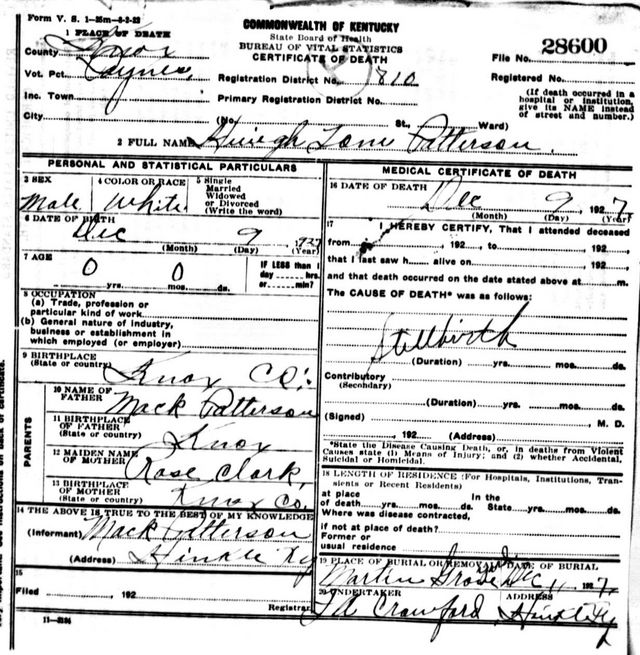 Form V. S. 1-35m-8-2-23
COMMONWEALTH OF KENTUCKY
State Board of Health
BUREAU OF VITAL STATISTICS
CERTIFICATE OF DEATH
File No. 28600
1 PLACE OF DEATH
County Knox
Vot. Pct. Paynes
Registration District No. 810
Registered No.
Inc. Town
Primary Registration District No.
(If death occurred in a hospital or institution, give its NAME instead of street and number.)
City
(No. St., Ward)
2 FULL NAME Patterson
PERSONAL AND STATISTICAL PARTICULARS
3 SEX
Male
4 COLOR OR RACE
White
5 Single
Married
Widowed
or Divorced
(Write the word)
6 DATE OF BIRTH
Dec 9 927
(Month) (Day) (Year)
7 AGE
0 0
yrs. mos. ds.
IF LESS than 1
day hrs.
or min?
8 OCCUPATION
(a) Trade, profession or
particular kind of work
(b) General nature of industry,
business or establishment in
which employed (or employer)
9 BIRTHPLACE
(State or country) Knox Co.
PARENTS
10 NAME OF
FATHER Mack Patterson
11 BIRTHPLACE
OF FATHER
(State or country) Knox
12 MAIDEN NAME
OF MOTHER Rose Clark
13 BIRTHPLACE
OF MOTHER
(State or country) Knox Co.
14 THE ABOVE IS TRUE TO THE BEST OF MY KNOWLEDGE
(Informant) Mack Patterson
(Address) Hinkle Ky
15
Filed , 192
Registrar
11-3184
MEDICAL CERTIFICATE OF DEATH
16 DATE OF DEATH
Dec 9, 1927
(Month) (Day) (Year)
17 I HEREBY CERTIFY, That I attended deceased
from , 192 , to , 192 ,
that I last saw h alive on , 192 ,
and that death occurred on the date stated above at m.
The CAUSE OF DEATH* was as follows:
Stillbirth
(Duration) yrs. mos. ds.
Contributory
(Secondary)
(Duration) yrs. mos. ds.
(Signed) , M. D.
, 192 (Address)
*State the Disease Causing Death, or, in deaths from Violent
Causes state (1) Means of Injury; and (2) whether Accidental,
Suicidal or Homicidal.
18 LENGTH OF RESIDENCE (For Hospitals, Institutions, Transients or Recent Residents)
at place In the
of death yrs. mos. ds. State yrs. mos. ds.
Where was disease contracted,
if not at place of death?
Former or
usual residence
19 PLACE OF BURIAL OR REMOVAL DATE OF BURIAL
Martin 11, 1927
20 UNDERTAKER ADDRESS
Crawford Hinkle Ky